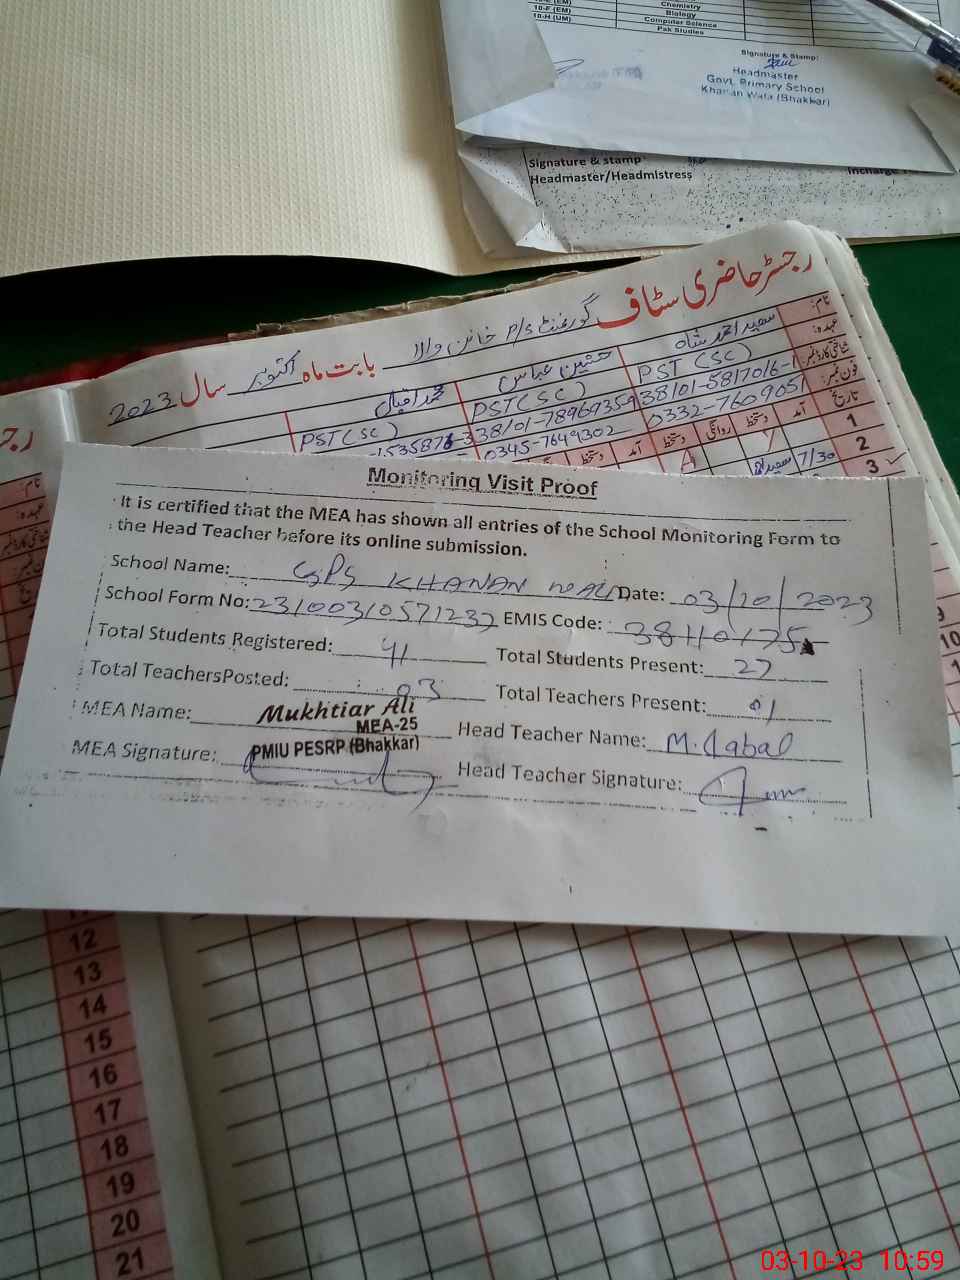 10-F (EM)
10-H (UM)
Chemistry
Biology
Computer Science
Pak Studies
Signature & Stamp:
Headmaster
Govt. Primary School
Khanan Wala (Bhakkar)
Signature & stamp
Headmaster/Headmistress
رجسٹر حاضری سٹاف گورنمنٹ P/S خانن والا بابت ماہ اکتوبر سال 2023
نام:
عہدہ:
شناختی کارڈ نمبر:
فون نمبر:
تاریخ
سعید احمد شاہ
حسنین عباس
محمد اقبال
PST (SC)
PST (SC)
PST (SC)
38101-5817016-1
0332-7609051
0345-7649302
آمد دستخط روانگی دستخط آمد دستخط
1
2
3
7/30
Monitoring Visit Proof
It is certified that the MEA has shown all entries of the School Monitoring Form to
the Head Teacher before its online submission.
School Name: GPS KHANAN WALA Date: 03/10/2023
School Form No: 23100310571237 EMIS Code: 38110175
Total Students Registered: 41 Total Students Present: 27
Total TeachersPosted: 03 Total Teachers Present: 01
MEA Name: Mukhtiar Ali
MEA-25
PMIU PESRP (Bhakkar)
Head Teacher Name: M. Iqbal
MEA Signature:
Head Teacher Signature:
9
10
12
13
14
15
16
17
18
19
20
21
03-10-23 10:59